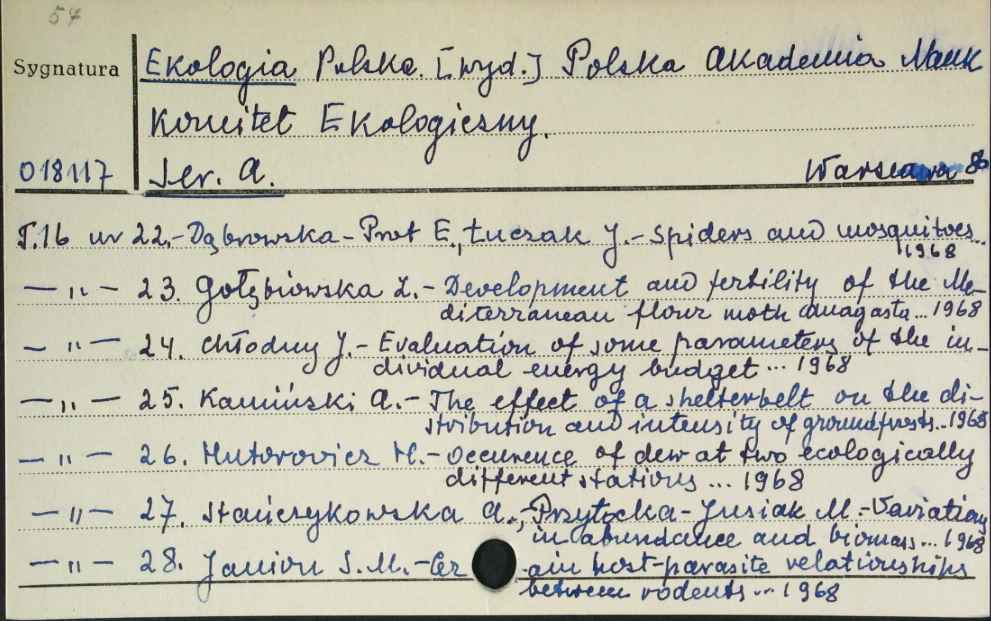 57
Sygnatura
Ekologia Polska. [wyd.] Polska Akademia Nauk
Komitet Ekologiczny.
018117 Ser. A. Warszawa 86
T.16 nr 22.- Dąbrowska-Prot E., Łuczak J.- Spiders and mosquitoes..
1968
— „ — 23. Gołębiowska Z.- Development and fertility of the Me-
diterranean flour moth anagasta... 1968
— „ — 24. Chłodny J.- Evaluation of some parameters of the in-
dividual energy budget ... 1968
— „ — 25. Kamiński A.- The effect of a shelterbelt on the di-
stribution and intensity of groundfrosts...1968
— „ — 26. Hutorowicz H.- Occurence of dew at two ecologically
different stations ... 1968
— „ — 27. Stańczykowska A., Przytocka-Jusiak M.- Variations
in abundance and biomass... 1968
— „ — 28. Janion S.M.- Cer ain host-parasite relationships
between rodents ... 1968